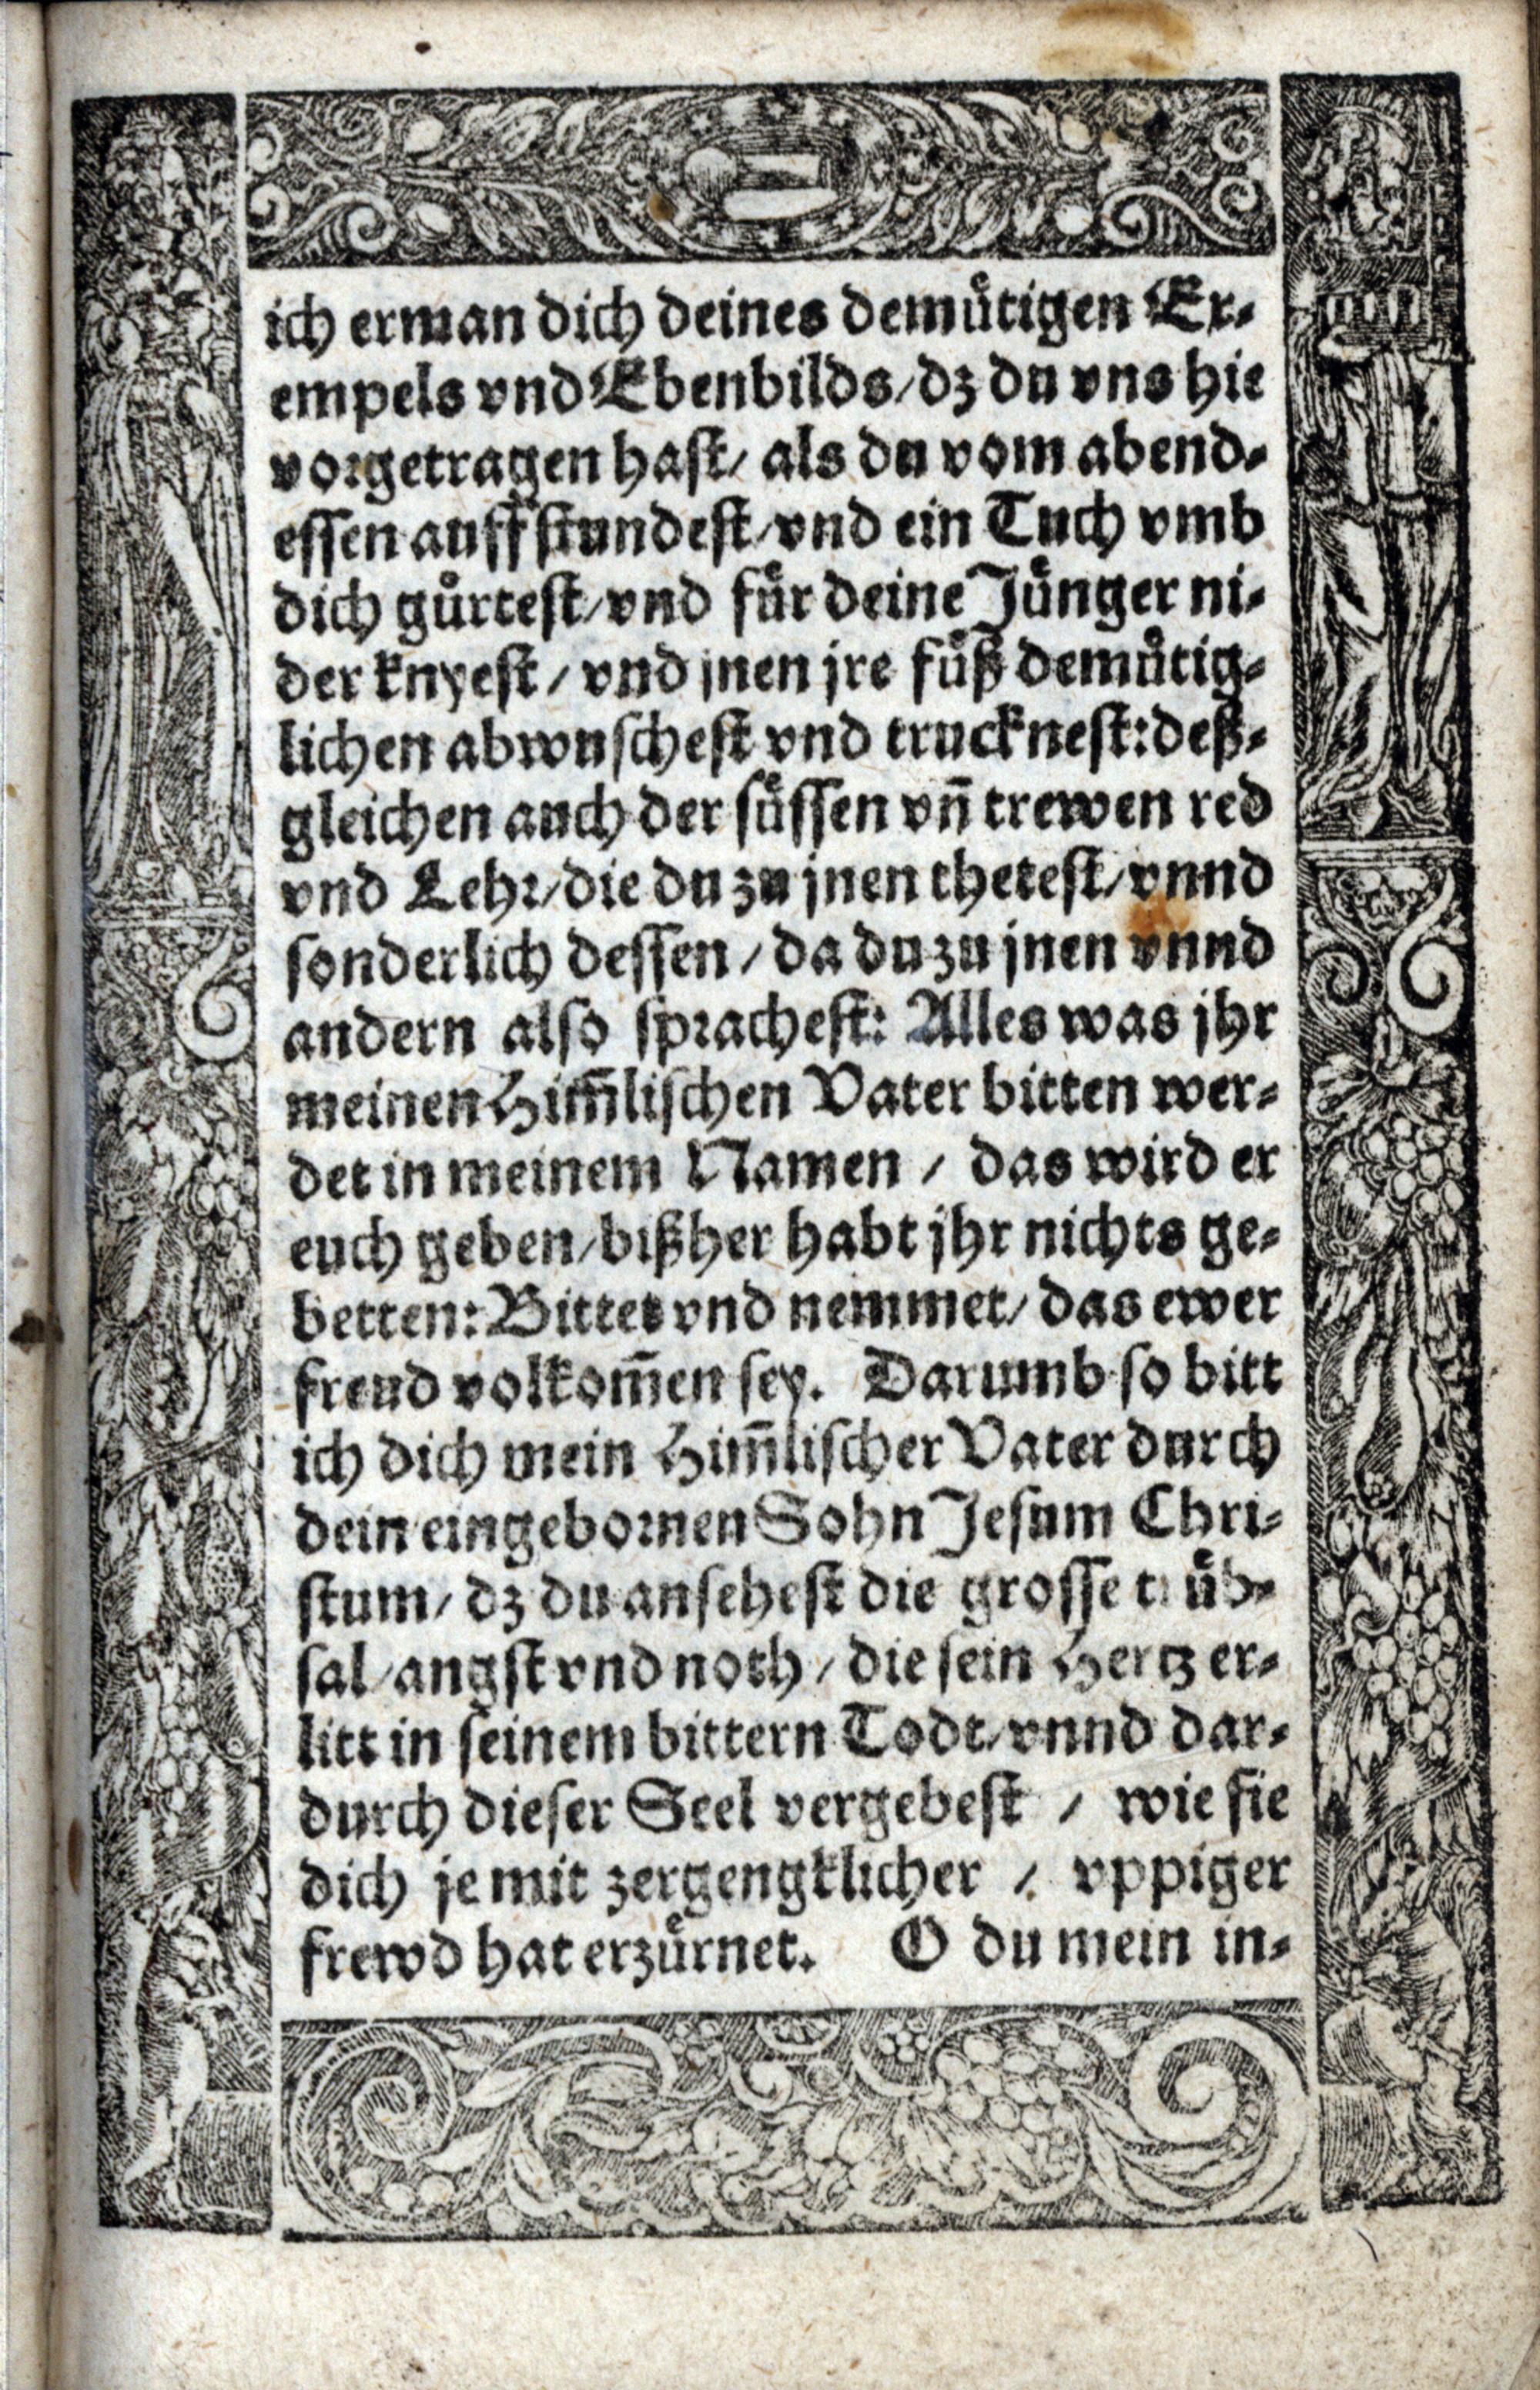 ich erman dich deines demuͤtigen Ex⸗
empels vnd Ebenbilds/dz du vns hie
vorgetragen hast/ als du vom abend⸗
essen auff stundest/vnd ein Tuch vmb
dich guͤrtest/vnd fuͤr deine Juͤnger ni⸗
der knyest/ vnd jnen jre fuͤß demuͤtig⸗
lichen abwuschest vnd trucknest:deß⸗
gleichen auch der suͤssen vñ trewen red
vnd Lehr/die du zu jnen thetest/vnnd
sonderlich dessen/ da du zu jnen vnnd
andern also sprachest: Alles was jhr
meinen Him̃lischen Vater bitten wer⸗
det in meinem Namen / das wird er
euch geben/bißher habt jhr nichts ge⸗
betten: Bittet vnd nemmet/ das ewer
freud volkom̃en sey. Darumb so bitt
ich dich mein Him̃lischer Vater durch
dein eingebornen Sohn Jesum Chri⸗
stum/ dz du ansehest die grosse truͤb⸗
sal/angst vnd noth/ die sein Hertz er⸗
litt in seinem bittern Todt/vnnd dar⸗
durch dieser Seel vergebest / wie sie
dich je mit zergengklicher / vppiger
frewd hat erzuͤrnet. O du mein in⸗